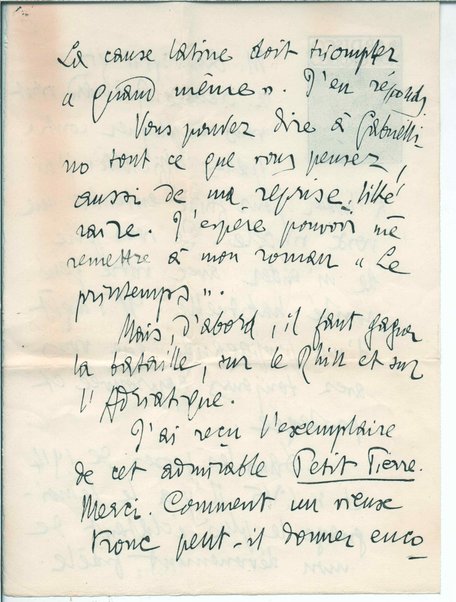 La cause latine doit triompher
« Quand même ». J'en réponds.
Vous pouvez dire à Gabrielli
no tout ce que vous pensez,
aussi de ma reprise litté
raire. J'espère pouvoir me
remettre à mon roman « Le
printemps ».
Mais, d'abord, il faut gagner
la bataille, sur le Rhin et sur
l'Adriatique.
J'ai reçu l'exemplaire
de cet admirable Petit Pierre.
Merci. Comment un vieux
tronc peut-il donner enco